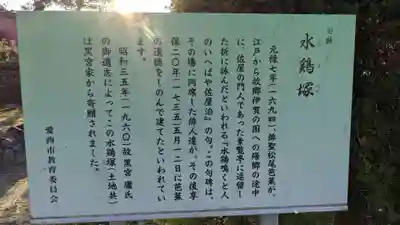 史跡
水鶏塚
元禄七年(一六九四)、俳聖松尾芭蕉が、
江戸から故郷伊賀の国への帰郷の途中
に、佐屋の門人であった素覧亭に逗留し
た折に詠んだといわれる『水鶏鳴くと人
のいへばや佐屋泊』の句。この句碑は、
その場に同席した俳人達が、その後享
保二〇年(一七三五)五月一二日に芭蕉
の遺徳をしのんで建てたといわれてい
ます。
昭和三五年(一九六〇)故黒宮庸氏
の御遺志によってこの水鶏塚(土地共)
は黒宮家から寄贈されました。
愛西市教育委員会